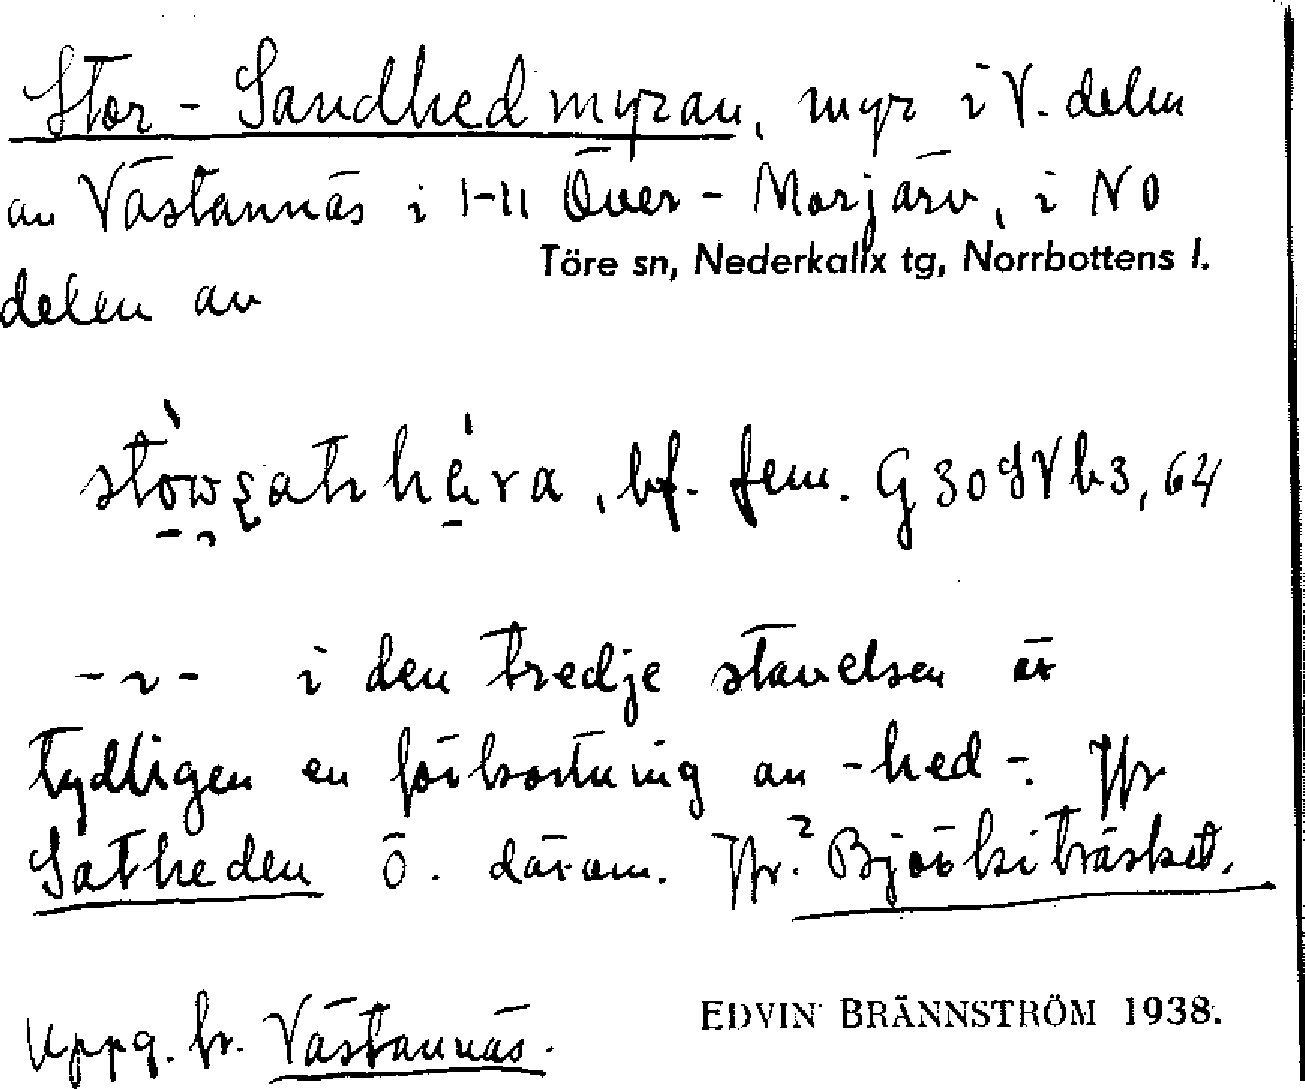 Stor-Sandhedmyran, myr i V. delen
av Västannäs i 1-11 Över-Morjärv, i NO
Töre sn, Nederkalix tg, Norrbottens l.
delen av
bf. fem. G309Vb3, 64
-ı- i den tredje stavelsen är
tydligen en förkortning av -hed-. Jfr
Satheden Ö. därom. Jfr.² Björkiträsket.
Uppg. fr. Västannäs.
EDVIN BRÄNNSTRÖM 1938.